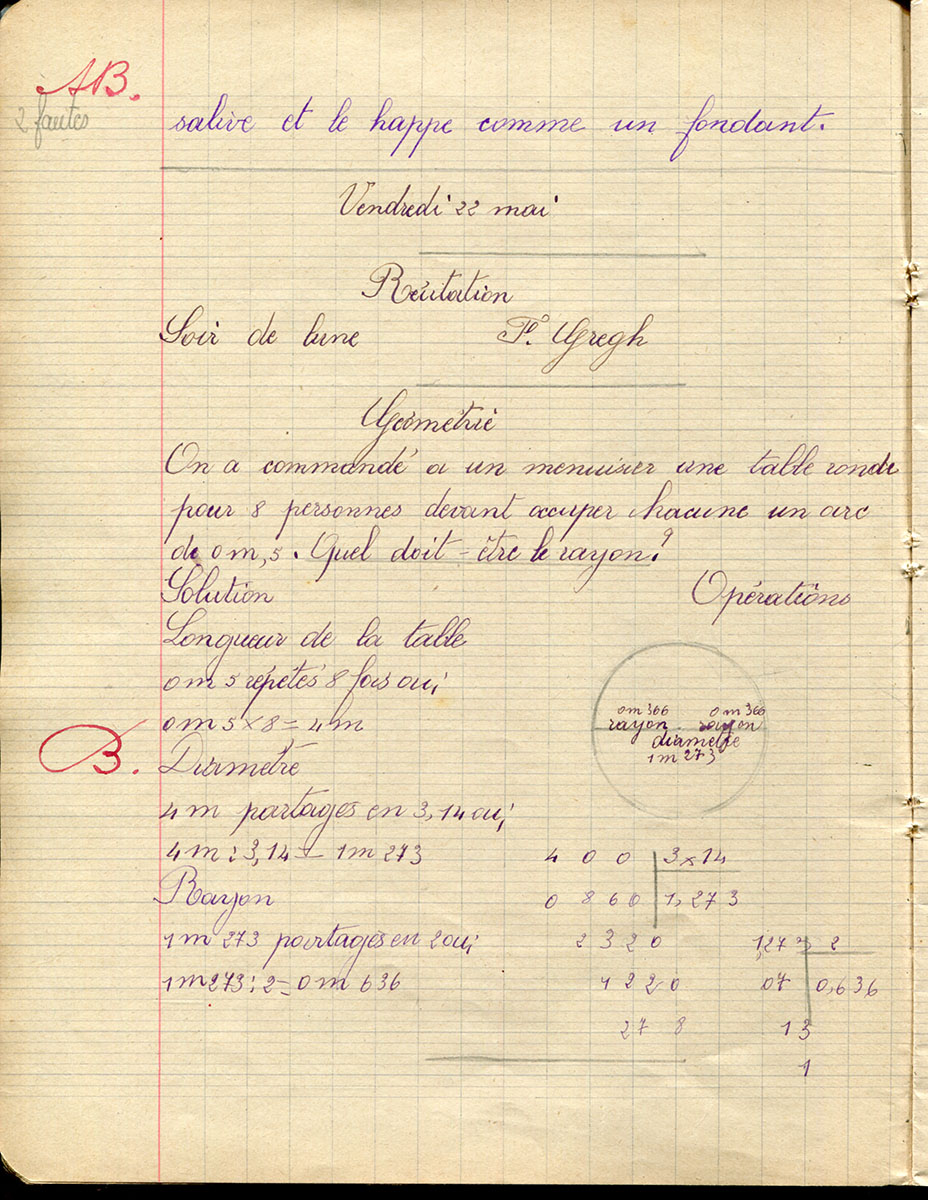 AB.
2 fautes
salive et le happe comme un fondant.
Vendredi 22 mai
Récitation
Soir de lune F. Gregh
Géométrie
On a commandé a un menuisier une table ronde
pour 8 personnes devant occuper chacune un arc
de 0 m, 5. Quel doit-être le rayon?
Solution Opérations
Longueur de la table
0 m 5 répétés 8 fois ou;
0 m 5 × 8 = 4 m
B.
Diamètre
0 m 366 0 m 366
rayon rayon
diamètre
1 m 273
4 m partagés en 3,14 ou;
4 m : 3,14 = 1 m 273
4 0 0 3,14
Rayon
0 8 6 0 1,273
1 m 273 partagés en 2 ou;
2 3 2 0 1,273 2
1 m 273 : 2 = 0 m 636
1 2 2 0 07 0,636
27 8 13
1